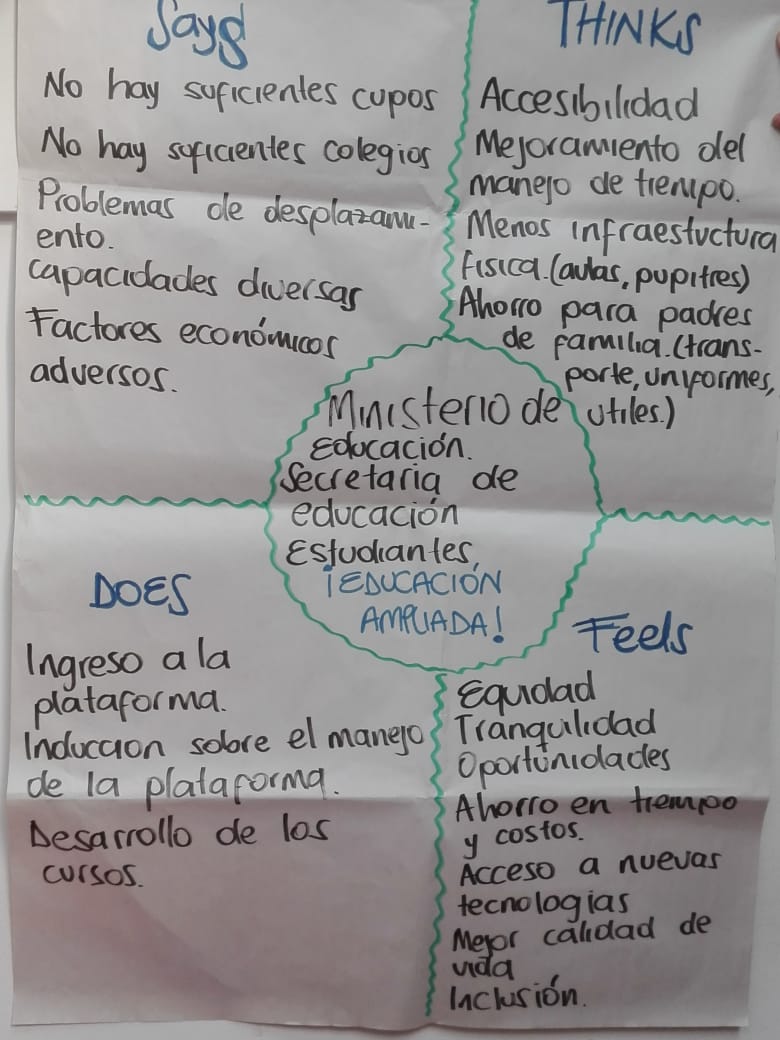 Says
No hay suficientes cupos
No hay suficientes colegios
Problemas de desplazami-
ento.
capacidades diversas
Factores económicos
adversos.
THINKS
Accesibilidad
Mejoramiento del
manejo de tiempo.
Menos infraestuctura
física.(aulas, pupitres)
Ahorro para padres
de familia.(trans-
porte, uniformes,
utiles.)
Ministerio de
Educación.
Secretaria de
educación
Estudiantes,
¡EDUCACIÓN
AMPLIADA!
DOES
Ingreso a la
plataforma.
Induccion sobre el manejo
de la plataforma.
Desarrollo de los
cursos.
Feels
Equidad
Tranquilidad
Oportunidades
Ahorro en tiempo
y costos.
Acceso a nuevas
tecnologias
Mejor calidad de
vida
Inclusión.